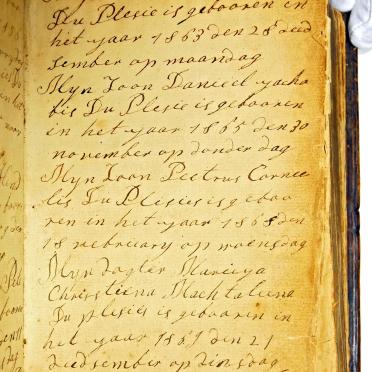 Du Plesie is gebooren in
het yaar 1863 den 28 deed
sember op maandag
Myn Zoon Danieel yacho
bis Du Plesie is gebooren
in het yaar 1865 den 30
november op donderdag
Myn Zoon Peetrus Cornee
lis Du Plisies is geboo
ren in het yaar 1868 den
18 nebruary op woensdag
Myn dagter Mariya
Chrisstiena Machtaleena
Du plesies is gebooren in
het yaar 1869 den 21
deedsember op dinsdag